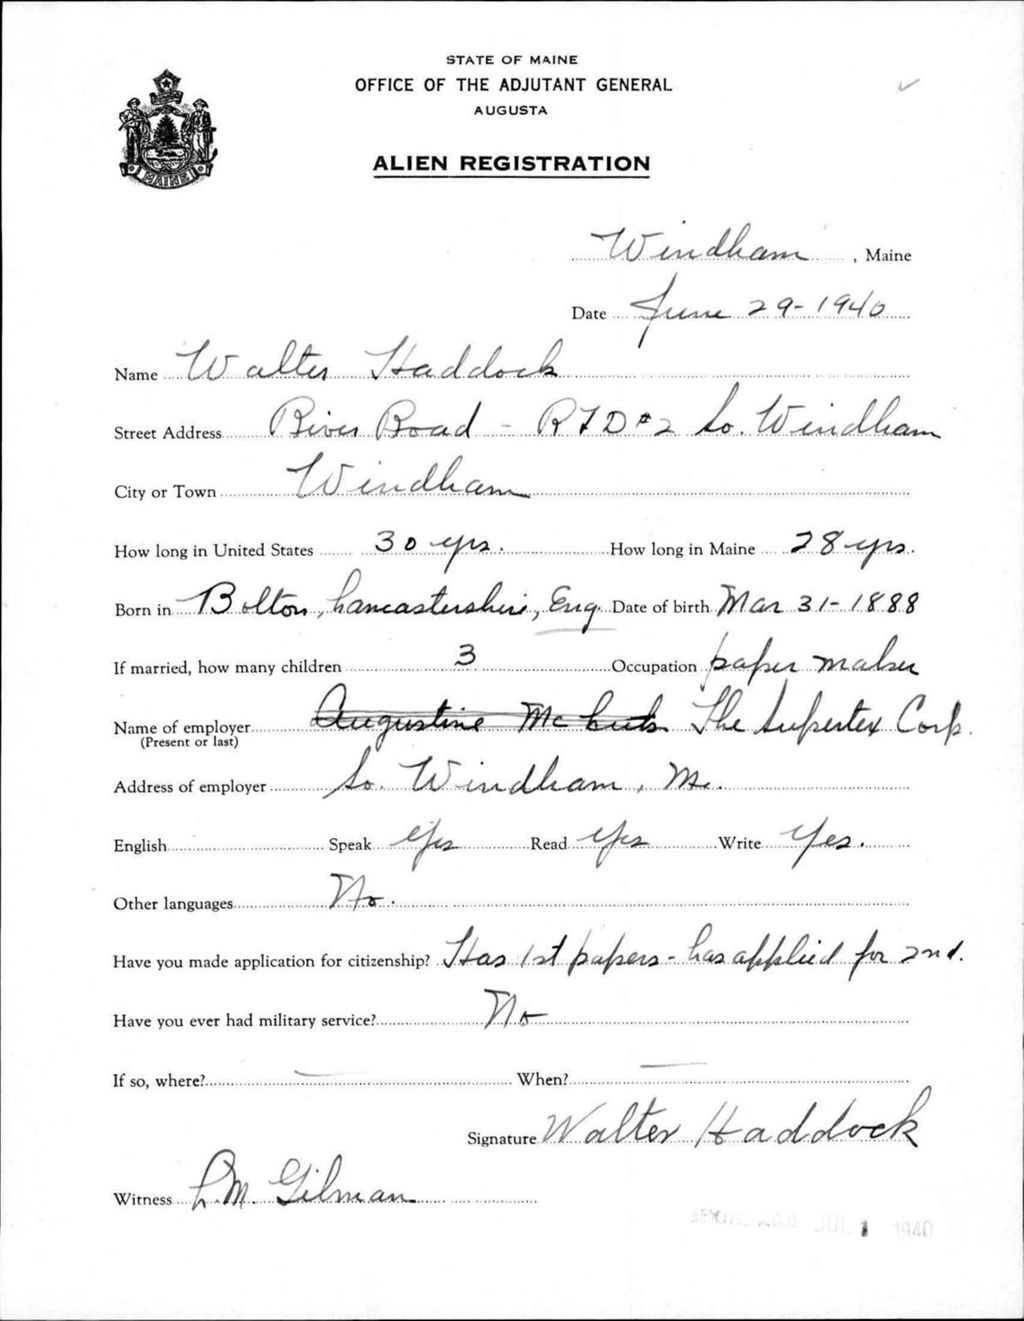 STATE OF MAINE
OFFICE OF THE ADJUTANT GENERAL
AUGUSTA
ALIEN REGISTRATION
MAINE
Windham, Maine
Date June 29-1940
Name Walter Haddock
Street Address River Road - RFD #2 So. Windham
City or Town Windham
How long in United States 30 yrs. How long in Maine 28 yrs.
Born in Bolton, Lancastershire, Eng. Date of birth Mar 31-1888
If married, how many children 3 Occupation paper maker
Name of employer Augustine Mc The Supertex Corp.
(Present or last)
Address of employer So. Windham, Me.
English Speak Yes Read Yes Write Yes.
Other languages No.
Have you made application for citizenship? Has 1st papers - has applied for 2nd.
Have you ever had military service? No
If so, where? — When? —
Signature Walter Haddock
Witness L.M. Gilman
A.G.O. JUL 1 1940